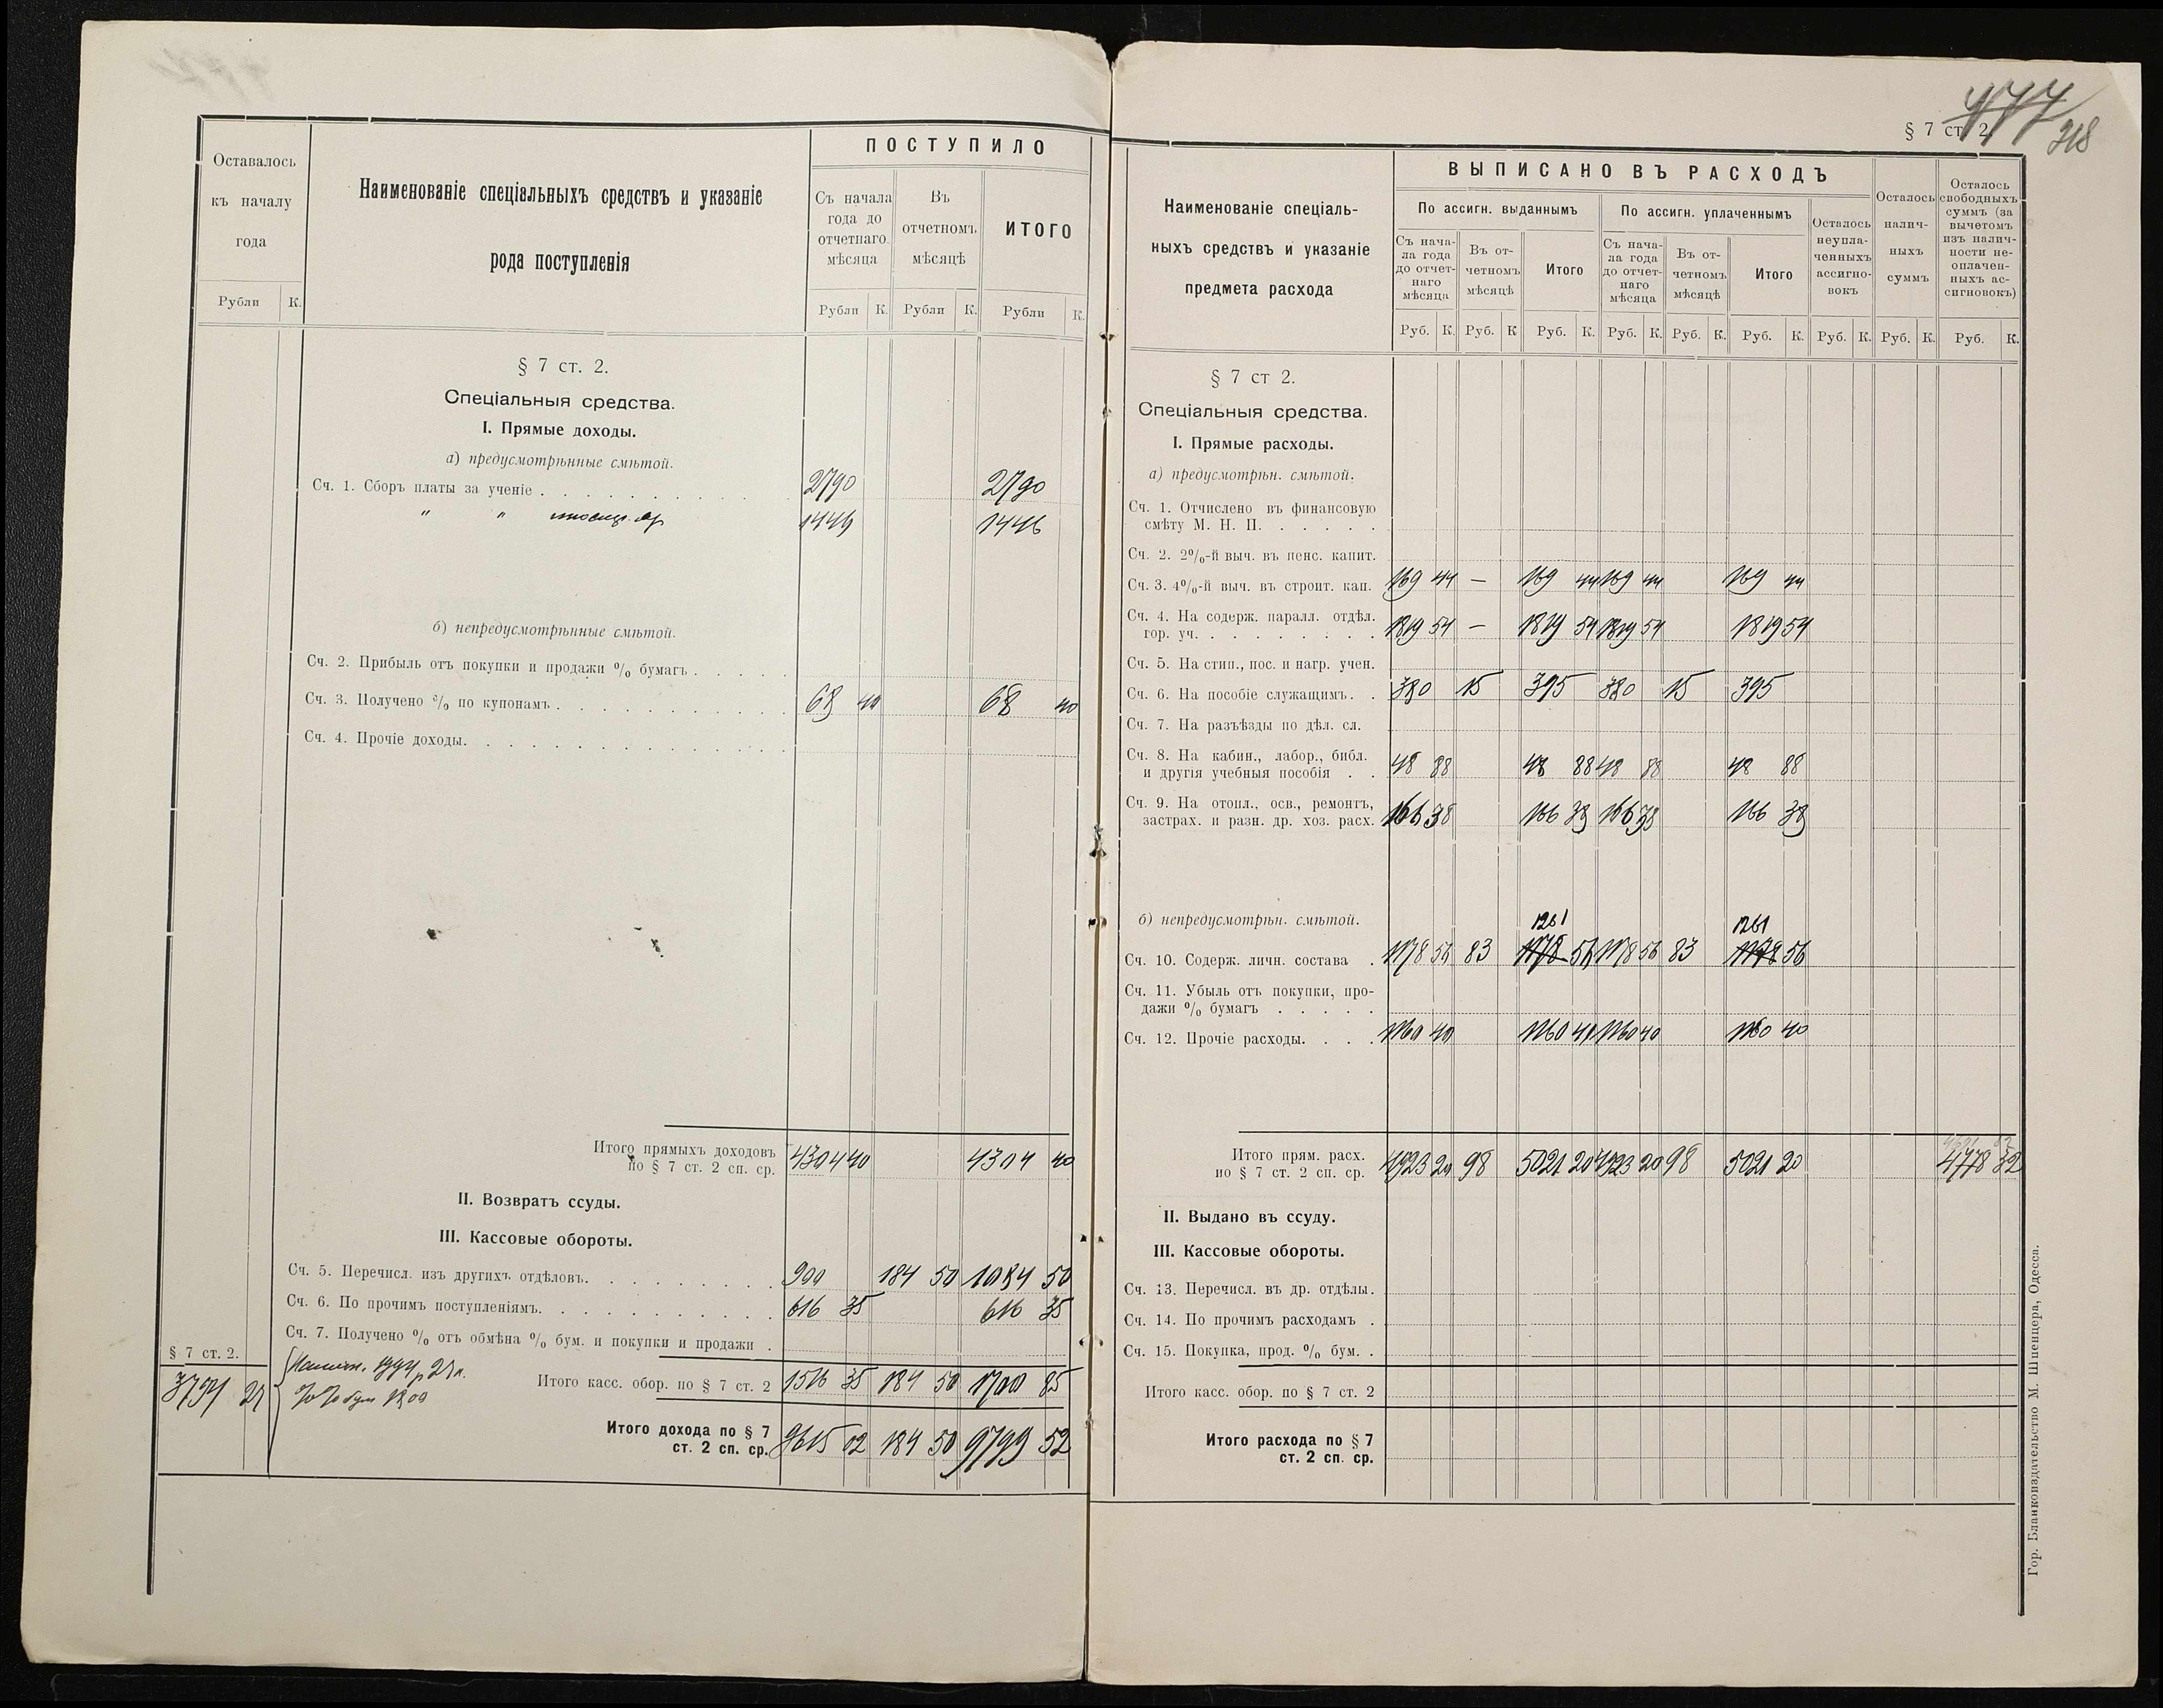 Оставалось
къ началу
года
Рубли К.
Наименованіе спеціальныхъ средствъ и указаніе
рода поступленія
ПОСТУПИЛО
Съ начала
года до
отчетнаго
мѣсяца
Въ
отчетномъ
мѣсяцѣ
ИТОГО
Рубли К. Рубли К. Рубли К.
§ 7 ст. 2.
Спеціальныя средства.
I. Прямые доходы.
а) предусмотрѣнные смѣтой.
Сч. 1. Сборъ платы за ученіе . . . . . . . . . . 2790 2790
" " 1446 1446
б) непредусмотрѣнные смѣтой.
Сч. 2. Прибыль отъ покупки и продажи % бумагъ . . . . .
Сч. 3. Получено % по купонамъ . . . . . . . . . . 68 40 68 40
Сч. 4. Прочіе доходы. . . . . . . . . . . . . .
Итого прямыхъ доходовъ
по § 7 ст. 2 сп. ср. 4304 40 4304 40
II. Возвратъ ссуды.
III. Кассовые обороты.
Сч. 5. Перечисл. изъ другихъ отдѣловъ. . . . . . . . . 900 184 50 1084 50
Сч. 6. По прочимъ поступленіямъ. . . . . . . . . . . 616 35 616 35
Сч. 7. Получено % отъ обмѣна % бум. и покупки и продажи .
§ 7 ст. 2.
3794 27
Налич. 1994 р 27 к.
% % бум 1800
Итого касс. обор. по § 7 ст. 2 1516 35 184 50 1700 85
Итого дохода по § 7
ст. 2 сп. ср. 9615 02 184 50 9799 52
477
§ 7 ст. 2.
318
Наименованіе спеціаль-
ныхъ средствъ и указаніе
предмета расхода
ВЫПИСАНО ВЪ РАСХОДЪ
По ассигн. выданнымъ
По ассигн. уплаченнымъ
Съ нача-
ла года
до отчет-
наго
мѣсяца
Въ от-
четномъ
мѣсяцѣ
Итого
Съ нача-
ла года
до отчет-
наго
мѣсяца
Въ от-
четномъ
мѣсяцѣ
Итого
Осталось
неупла-
ченныхъ
ассигно-
вокъ
Осталось
налич-
ныхъ
суммъ
Осталось
свободныхъ
суммъ (за
вычетомъ
изъ налич-
ности не-
оплачен-
ныхъ ас-
сигновокъ)
Руб. К. Руб. К Руб. К. Руб. К. Руб. К. Руб. К. Руб. К. Руб. К. Руб. К.
§ 7 ст 2.
Спеціальныя средства.
I. Прямые расходы.
а) предусмотрѣн. смѣтой.
Сч. 1. Отчислено въ финансовую
смѣту М. Н. П. . . . . .
Сч. 2. 2%-й выч. въ пенс. капит.
Сч. 3. 4%-й выч. въ строит. кап. 169 44 — 169 44 169 44 169 44
Сч. 4. На содерж. паралл. отдѣл.
гор. уч. . . . . . . . . 1819 54 — 1819 54 1819 54 1819 54
Сч. 5. На стип., пос. и нагр. учен.
Сч. 6. На пособіе служащимъ. . 380 15 395 380 15 395
Сч. 7. На разъѣзды по дѣл. сл.
Сч. 8. На кабин., лабор., библ.
и другія учебныя пособія . . 48 88 48 88 48 88 48 88
Сч. 9. На отопл., осв., ремонтъ,
застрах. и разн. др. хоз. расх. 166 38 166 38 166 38 166 38
б) непредусмотрѣн. смѣтой.
1261 1261
Сч. 10. Содерж. личн. состава . 1178 56 83 1178 56 1178 56 83 1178 56
Сч. 11. Убыль отъ покупки, про-
дажи % бумагъ . . . . .
Сч. 12. Прочіе расходы. . . . 1160 40 1160 40 1160 40 1160 40
Итого прям. расх.
по § 7 ст. 2 сп. ср. 4923 20 98 5021 20 4923 20 98 5021 20 4778 32
II. Выдано въ ссуду.
III. Кассовые обороты.
Сч. 13. Перечисл. въ др. отдѣлы.
Сч. 14. По прочимъ расходамъ .
Сч. 15. Покупка, прод. % бум. .
Итого касс. обор. по § 7 ст. 2
Итого расхода по § 7
ст. 2 сп. ср.
Гор. Бланкоиздательство М. Шпенцера, Одесса.